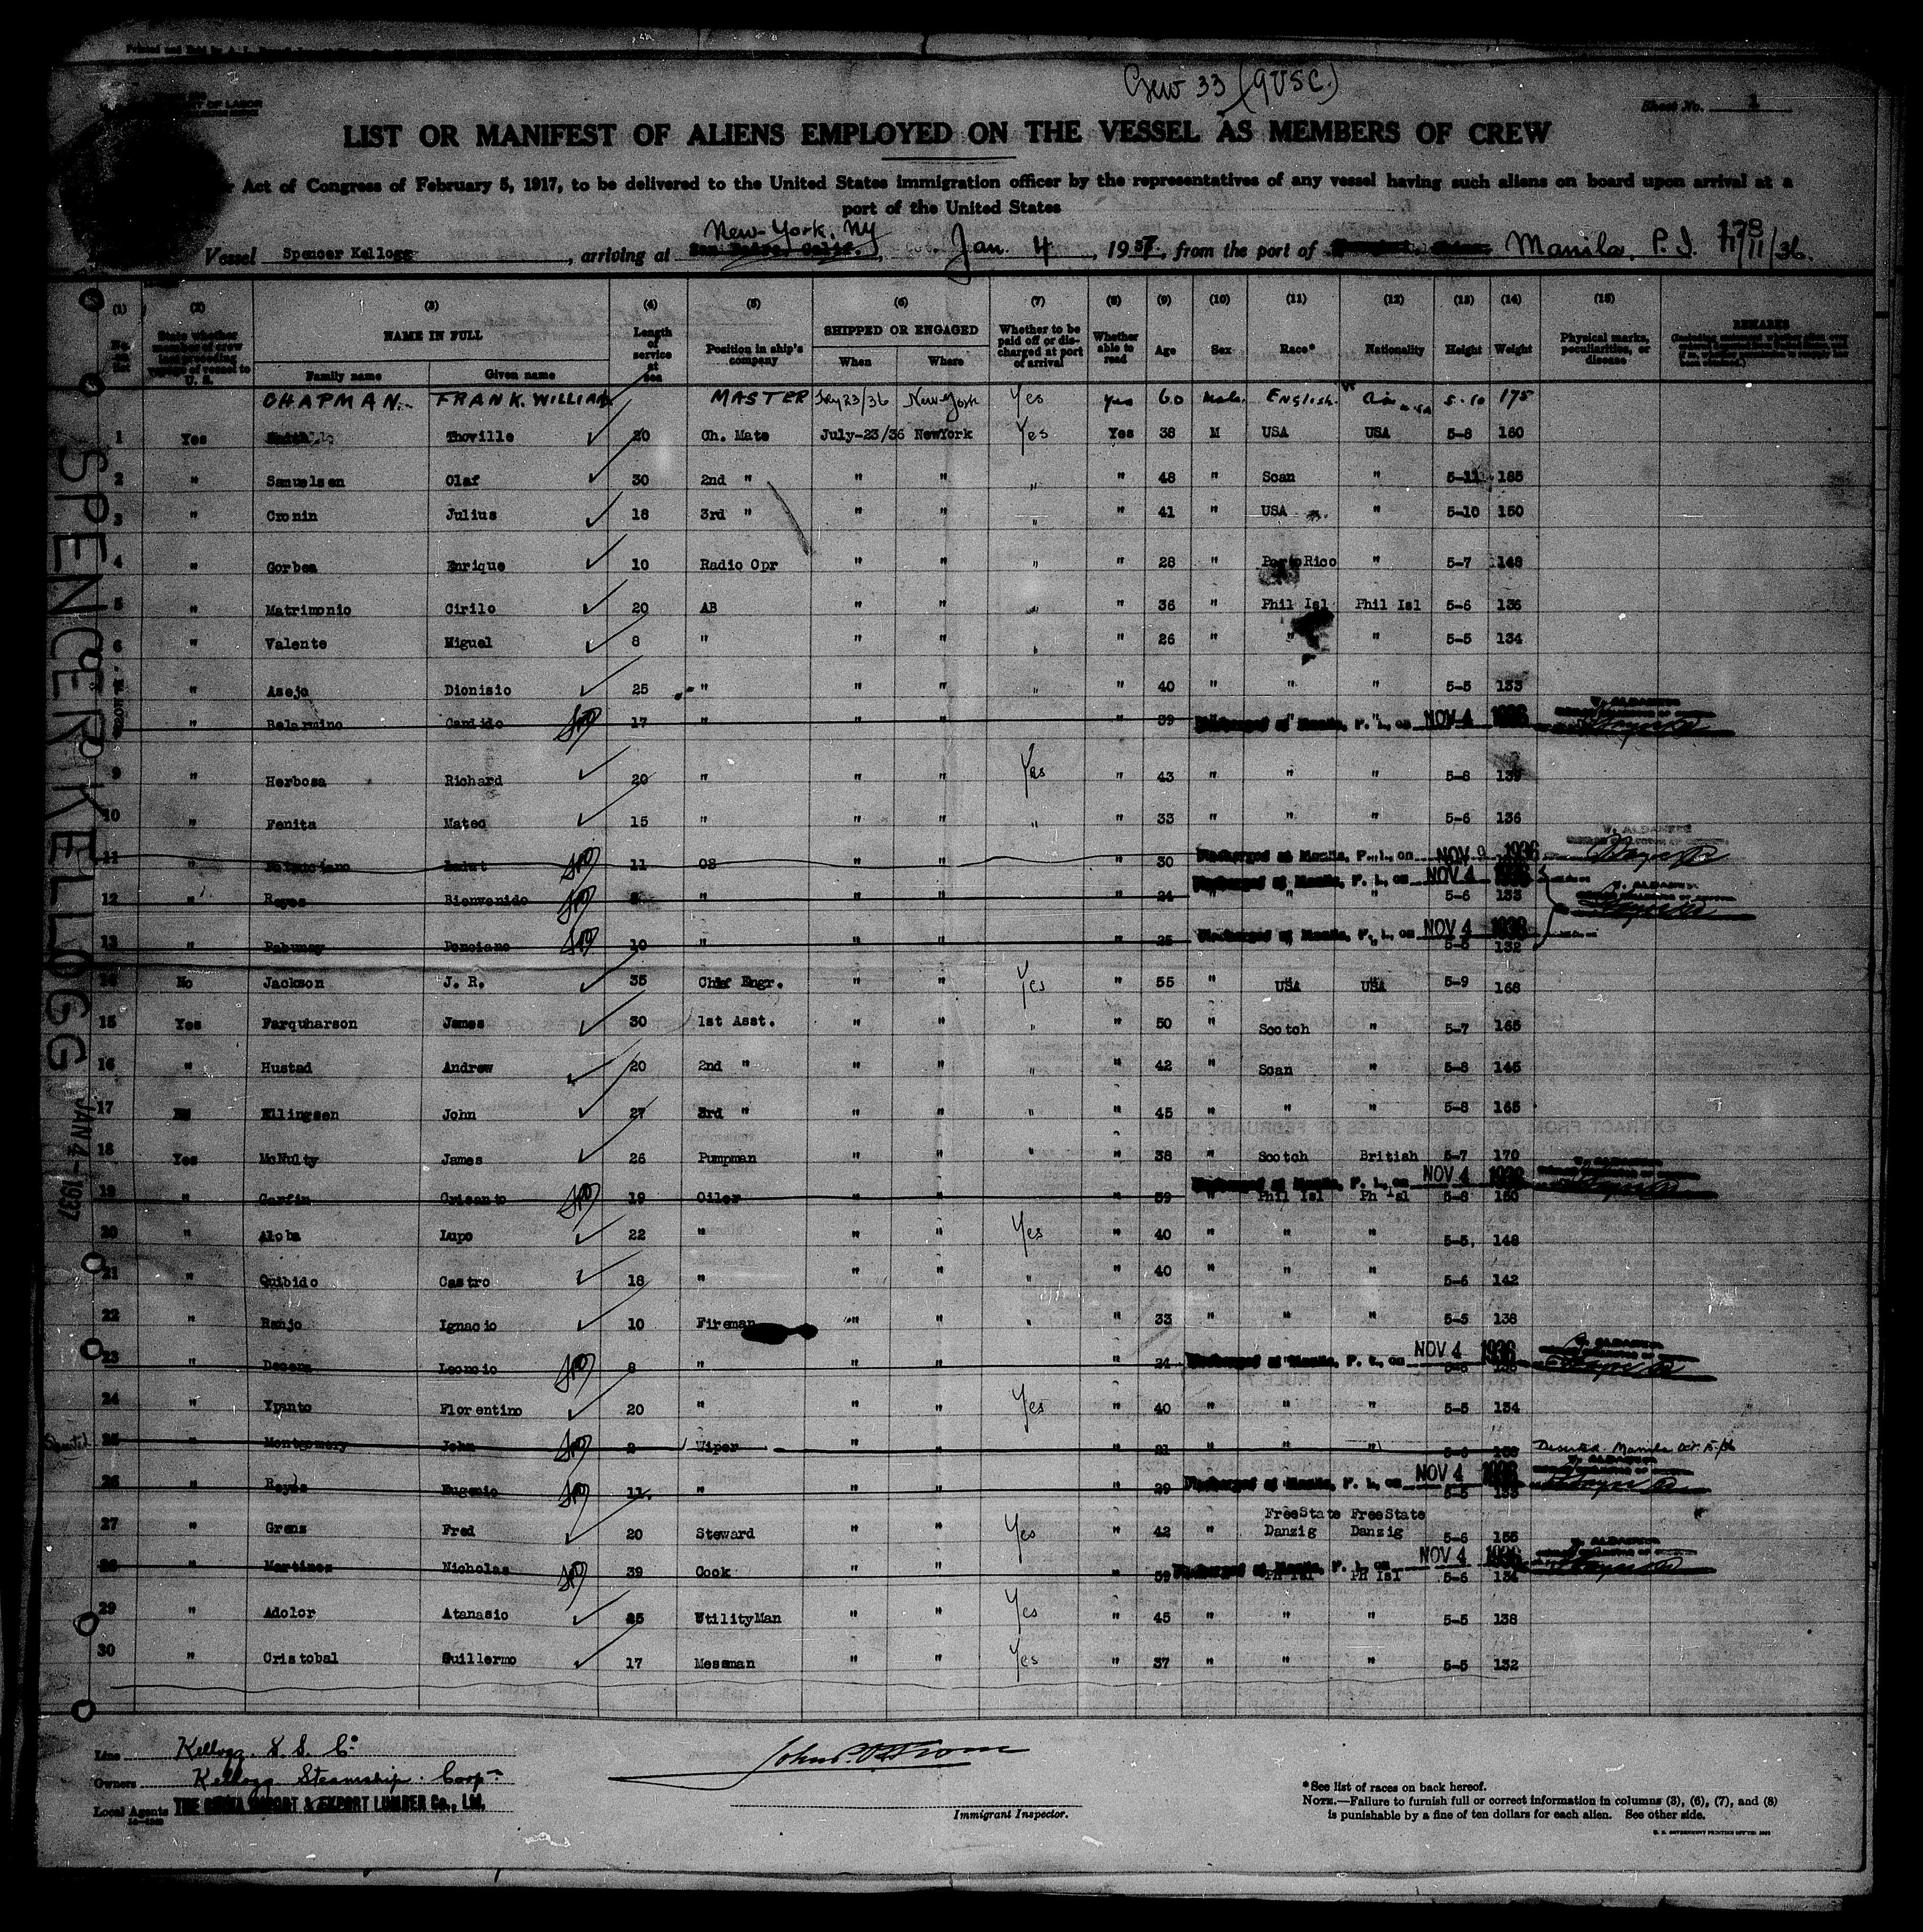 Crew 33 (9 USC.)
Sheet No. 1
LIST OR MANIFEST OF ALIENS EMPLOYED ON THE VESSEL AS MEMBERS OF CREW
Act of Congress of February 5, 1917, to be delivered to the United States immigration officer by the representatives of any vessel having such aliens on board upon arrival at a
port of the United States
Vessel Spencer Kellogg, arriving at New-York, NY Jan. 4, 1937, from the port of Manila, P. I. 11/11/36.
(1) (2) (3) (4) (5) (6) (7) (8) (9) (10) (11) (12) (13) (14) (15)
NAME IN FULL Length of service at sea Position in ship's company SHIPPED OR ENGAGED Whether to be paid off or discharged at port of arrival Whether able to read Age Sex Race* Nationality Height Weight Physical marks, peculiarities, or disease REMARKS
Family name Given name When Where
CHAPMAN. FRANK. WILLIAM MASTER New York Yes Yes 60 Male. English. 5-10 175
1 Yes Thoville 20 Ch. Mate July-23/36 NewYork Yes Yes 38 M USA USA 5-8 160
2 " Samuelsen Olaf 30 2nd " " " " " 48 " Scan " 5-11 185
3 " Cronin Julius 18 3rd " " " " " 41 " USA " 5-10 150
4 " Gorbea Enrique 10 Radio Opr " " " " 28 " PortoRico " 5-7 148
5 " Matrimonio Cirilo 20 AB " " " " 36 " Phil Isl Phil Isl 5-6 136
6 " Valente Miguel 8 " " " " " 26 " " " 5-5 134
" Asejo Dionisio 25 " " " " " 40 " " " 5-5 133
" Belarmino Candido 17 " " " " 39 Discharged at Manila, P. I., on NOV 4 1936
9 " Herbosa Richard 20 " " " Yes " 43 " " " 5-8 139
10 " Fenita Mateo 15 " " " " " 33 " " " 5-6 136
11 " 11 OS " " " 30 Discharged at Manila, P. I., on NOV 9 1936
12 " Reyes Bienvenido " " " " 24 Discharged at Manila, P. I., on NOV 4 1936 " " 5-6 133
13 " Ponciano 10 " " " " 25 Discharged at Manila, P. I., on NOV 4 1936 5-5 132
14 No Jackson J. R. 35 Chief Engr. " " Yes " 55 " USA USA 5-9 168
15 Yes Farquharson James 30 1st Asst. " " " " 50 " Scotch " 5-7 165
16 " Hustad Andrew 20 2nd " " " " " 42 " Scan " 5-8 145
17 Ellingsen John 27 3rd " " " " " 45 " " " 5-8 165
18 Yes McNulty James 26 Pumpman " " " " 38 " Scotch British 5-7 170
19 " Garfin Crisanto 19 Oiler " " " 39 Discharged at Manila, P. I., on NOV 4 1936 " Phil Isl Ph Isl 5-8 150
20 " Aloba Lupo 22 " " " Yes " 40 " " " 5-5, 148
21 " Quibido Castro 18 " " " " " 40 " " " 5-6 142
22 " Banjo Ignacio 10 Fireman " " " " 33 " " " 5-5 138
23 " Leoncio 8 " " " " 24 Discharged at Manila, P. I., on NOV 4 1936
24 " Ypanto Florentino 20 " " " Yes " 40 " " " 5-5 134
25 " Montgomery John 2 Wiper " " " 21 " " " Deserted. Manila Oct. 15/36
26 " Reyes Eugenio 11. " " " " 29 Discharged at Manila, P. I., on NOV 4 1936 5-5 133
27 " Grens Fred 20 Steward " " Yes " 42 " FreeState Danzig FreeState Danzig 5-6 155
28 " Martinez Nicholas 39 Cook " " " 59 Discharged at Manila, P. I., on NOV 4 1936 Ph Isl Ph Isl 5-6 134
29 " Adolor Atanasio 25 UtilityMan " " Yes " 45 " " " 5-5 138
30 " Cristobal Guillermo 17 Messman " " Yes " 37 " " " 5-5 132
SPENCER KELLOGG
JAN 4-1937
Line Kellogg S. S. Co.
Owners Kellogg Steamship Corp.
Local Agents THE CHINA IMPORT & EXPORT LUMBER Co., Ltd.
Immigrant Inspector.
*See list of races on back hereof.
NOTE.—Failure to furnish full or correct information in columns (3), (6), (7), and (8)
is punishable by a fine of ten dollars for each alien. See other side.